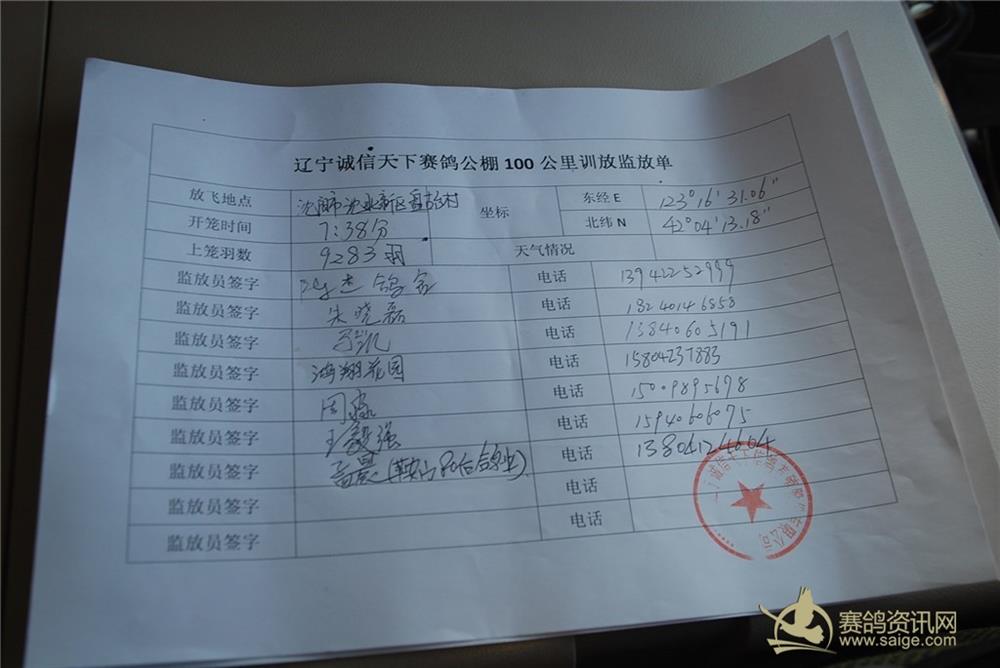 辽宁诚信天下赛鸽公棚 100 公里训放监放单
放飞地点 沈阳市沈北新区 坐标 东经 E 123°16′31.06″
开笼时间 7:38分 北纬 N 42°04′13.18″
上笼羽数 9283羽 天气情况
监放员签字 杰鸽舍 电话 13942252999
监放员签字 朱晓磊 电话 18240146858
监放员签字 于凯 电话 13840605191
监放员签字 鸿翔花园 电话 15804237883
监放员签字 周 电话 15009895698
监放员签字 王毅强 电话 15940606075
监放员签字 孟晨(鞍山80后鸽舍) 电话 13804124604
监放员签字 电话
监放员签字 电话
赛鸽资讯网
www.saige.com